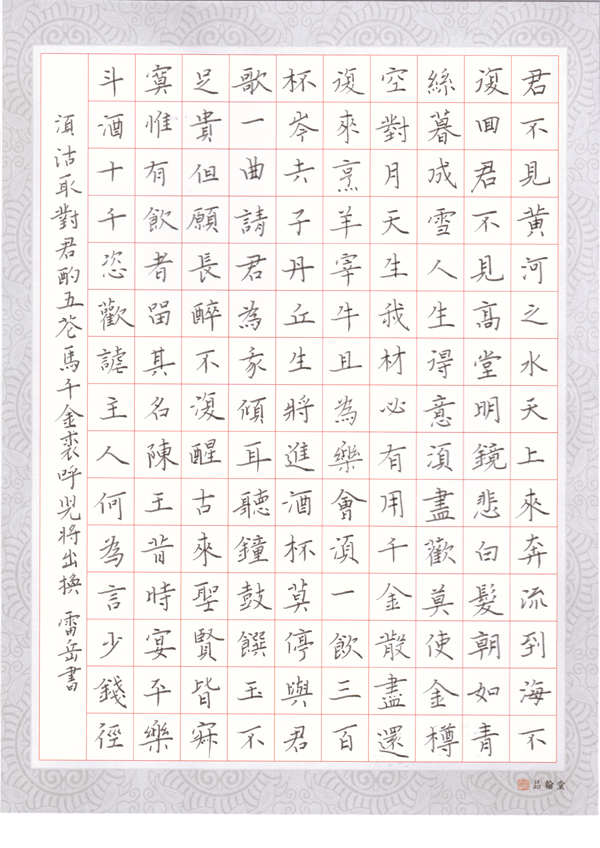 君不見黃河之水天上來奔流到海不
復回君不見高堂明鏡悲白髮朝如青
絲暮成雪人生得意須盡歡莫使金樽
空對月天生我材必有用千金散盡還
復來烹羊宰牛且為樂會須一飲三百
杯岑夫子丹丘生將進酒杯莫停與君
歌一曲請君為我傾耳聽鐘鼓饌玉不
足貴但願長醉不復醒古來聖賢皆寂
寞惟有飲者留其名陳王昔時宴平樂
斗酒十千恣歡謔主人何為言少錢徑
須沽取對君酌五花馬千金裘呼兒將出換 雷岳書
品翰堂